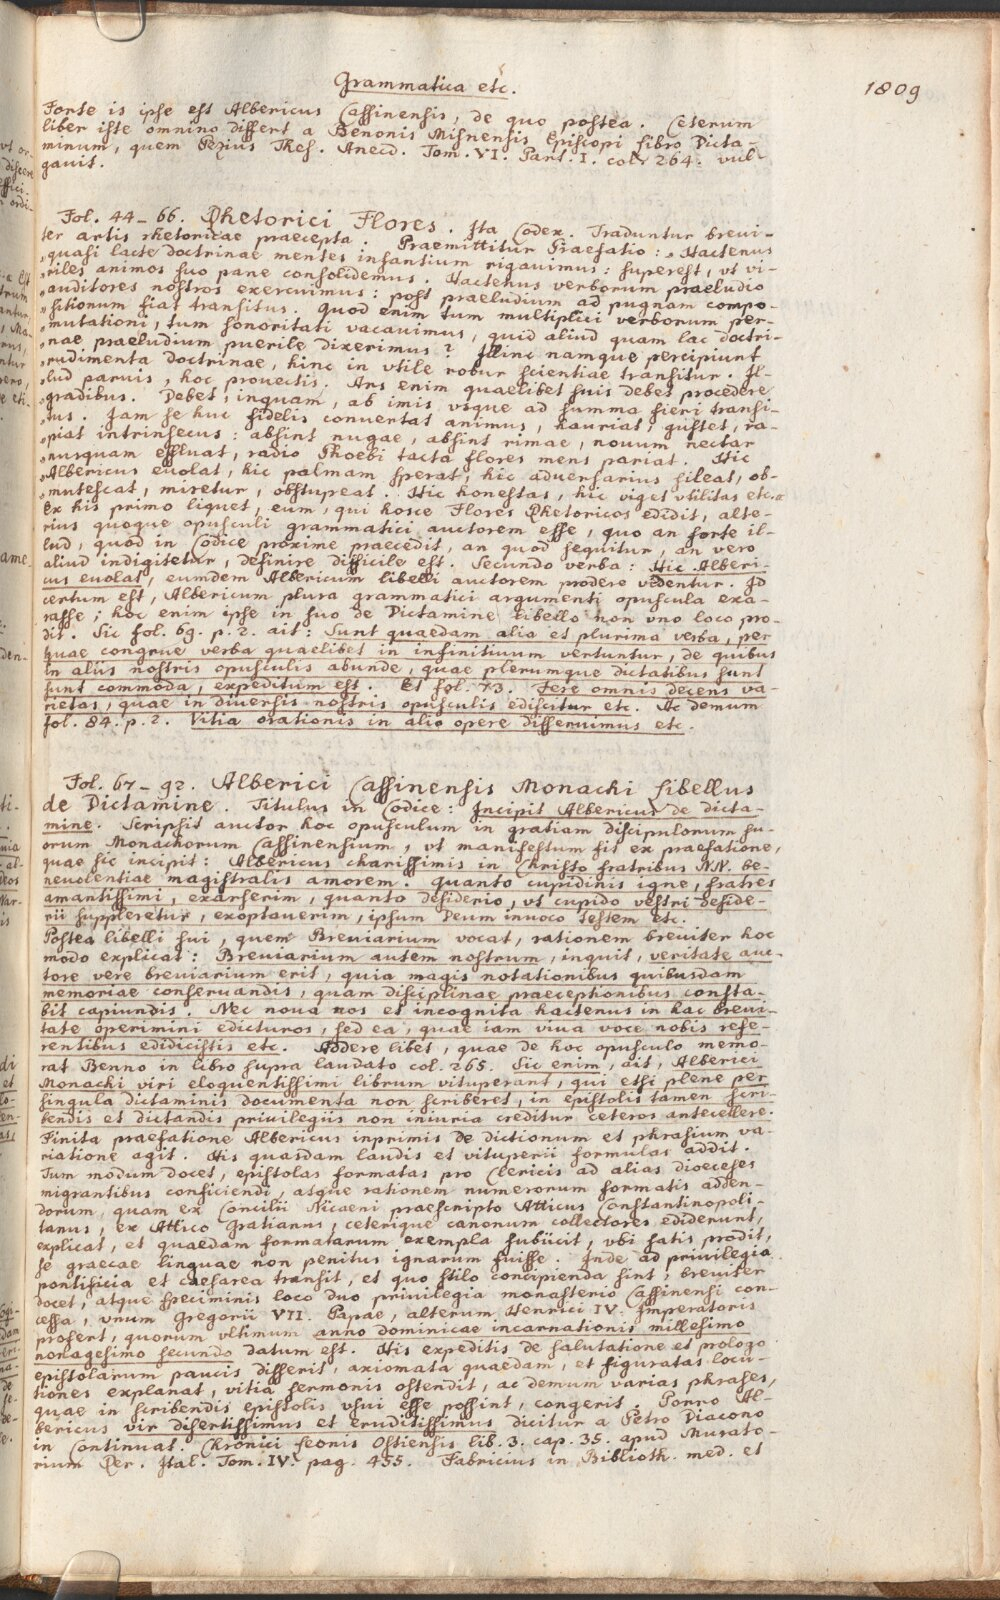 Grammatica etc. 1809
Forte is ipse est Albericus Cassinensis, de quo postea. Ceterum
liber iste omnino differt a Benonis Misnensis Episcopi libro Dicta-
minum, quem Pezius Thes. Anecd. Tom. VI. Part. I. col. 264. vul-
gavit.
Fol. 44–66. Rhetorici Flores. Ita Codex. Traduntur brevi-
ter artis rhetoricae praecepta. Praemittitur Praefatio: „Hactenus
„quasi lacte doctrinae mentes infantium rigavimus: superest, vt vi-
„riles animos suo pane consolidemus. Hactenus verborum praeludio
„auditores nostros exercuimus: post praeludium ad pugnam compo-
„sitionum fiat transitus. Quod enim tum multiplici verborum per-
„mutationi, tum sonoritati vacauimus, quid aliud quam lac doctri-
„nae praeludium puerile dixerimus? Illinc namque percipiunt
„rudimenta doctrinae, hinc in vtile robur scientiae transitur. Il-
„lud paruis, hoc prouectis. Ars enim quaelibet suis debet procedere
„gradibus. Debet, inquam, ab imis vsque ad summa fieri transi-
„tus. Jam se huc fidelis conuertat animus, hauriat, gustet, ra-
„piat intrinsecus: absint nugae, absint rimae, nouum nectar
„nusquam effluat, radio Phoebi tacta flores mens pariat. Hic
„Albericus euolat, hic palmam sperat, hic aduersarius sileat, ob-
„mutescat, miretur, obstupeat. Hic honestas, hic viget vtilitas etc.“
Ex his primo liquet, eum, qui hosce Flores Rhetoricos edidit, alte-
rius quoque opusculi grammatici auctorem esse, quo an forte il-
lud, quod in Codice proxime praecedit, an quod sequitur, an vero
aliud indigitetur, definire difficile est. Secundo verba: Hic Alberi-
cus euolat, eumdem Albericum libelli auctorem prodere videntur. Id
certum est, Albericum plura grammatici argumenti opuscula exa-
rasse; hoc enim ipse in suo de Dictamine libello non vno loco pro-
dit. Sic fol. 69. p. 2. ait: Sunt quaedam alia et plurima verba, per
quae congrue verba quaelibet in infinitiuum vertuntur, de quibus
in aliis nostris opusculis abunde, quae plerumque dictatibus sunt
sunt commoda, expeditum est. Et fol. 73. Fere omnis decens va-
rietas, quae in diuersis nostris opusculis ediscitur etc. Ac demum
fol. 84. p. 2. Vitia orationis in alio opere disseruimus etc.
Fol. 67–92. Alberici Cassinensis Monachi libellus
de Dictamine. Titulus in Codice: Incipit Albericus de dicta-
mine. Scripsit auctor hoc opusculum in gratiam discipulorum su-
orum Monachorum Cassinensium, vt manifestum fit ex praefatione,
quae sic incipit: Albericus charissimis in Christo fratribus NN. be-
neuolentiae magistralis amorem. Quanto cupidinis igne, fratres
amantissimi, exarserim, quanto desiderio, vt cupido vestri deside-
rii suppleretur, exoptauerim, ipsum Deum inuoco testem etc.
Postea libelli sui, quem Breuiarium vocat, rationem breuiter hoc
modo explicat: Breuiarium autem nostrum, inquit, veritate auc-
tore vere breuiarium erit, quia magis notationibus quibusdam
memoriae conseruandis, quam disciplinae praeceptionibus consta-
bit capiundis. Nec noua nos et incognita hactenus in hac breui-
tate operimini edicturos, sed ea, quae iam viua voce nobis refe-
rentibus edidicistis etc. Addere libet, quae de hoc opusculo memo-
rat Benno in libro supra laudato col. 265. Sic enim, ait, Alberici
Monachi viri eloquentissimi librum vituperant, qui etsi plene per
singula dictaminis documenta non scriberet, in epistolis tamen scri-
bendis et dictandis priuilegiis non iniuria creditur ceteros antecellere.
Finita praefatione Albericus inprimis de dictionum et phrasium va-
riatione agit. His quasdam laudis et vituperii formulas addit.
Tum modum docet, epistolas formatas pro Clericis ad alias dioeceses
migrantibus conficiendi, atque rationem numerorum formatis adden-
dorum, quam ex Concilii Nicaeni praescripto Atticus Constantinopoli-
tanus, ex Attico Gratianus, ceterique canonum collectores ediderunt,
explicat, et quaedam formatarum exempla subiicit, vbi satis prodit,
se graecae linguae non penitus ignarum fuisse. Inde ad priuilegia
pontificia et caesarea transit, et quo stilo concipienda sint, breuiter
docet, atque speciminis loco duo priuilegia monasterio Cassinensi con-
cessa, vnum Gregorii VII. Papae, alterum Henrici IV. Imperatoris
profert, quorum vltimum anno dominicae incarnationis millesimo
nonagesimo secundo datum est. His expeditis de salutatione et prologo
epistolarum paucis disserit, axiomata quaedam, et figuratas locu-
tiones explanat, vitia sermonis ostendit, ac demum varias phrases,
quae in scribendis epistolis vsui esse possint, congerit. Porro Al-
bericus vir disertissimus et eruditissimus dicitur a Petro Diacono
in Continuat. Chronici Leonis Ostiensis lib. 3. cap. 35. apud Murato-
rium Rer. Ital. Tom. IV. pag. 455. Fabricius in Biblioth. med. et